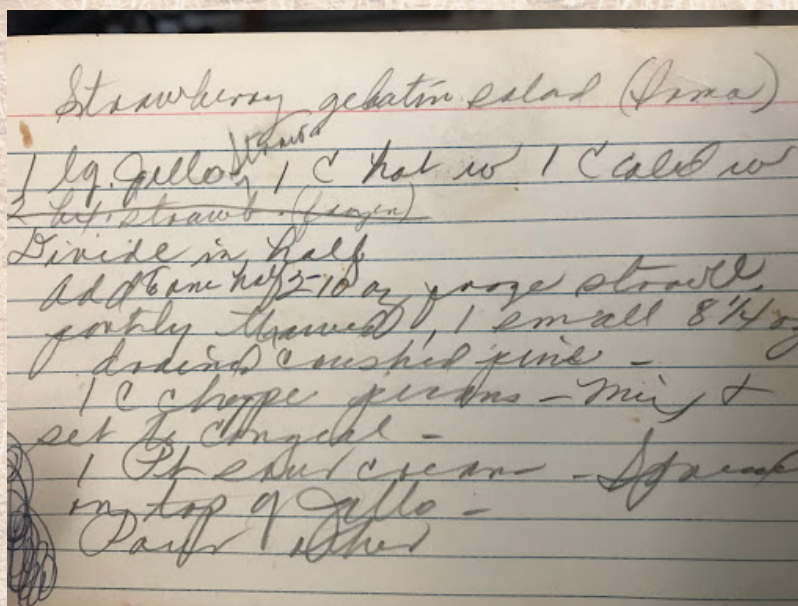 Strawberry gelatin salad (Irma)
1 lg. Jello Straw 1 C hot w 1 C cold w
2 bx. strawb. (frozen)
Divide in half
add to one half 2-10 oz froze strawb.
partly thawed, 1 small 8 1/4 oz
drained crushed pine -
1 C choppe pecans - Mix &
set to congeal -
1 Pt sour cream - Spread
on top of Jello -
Pour other